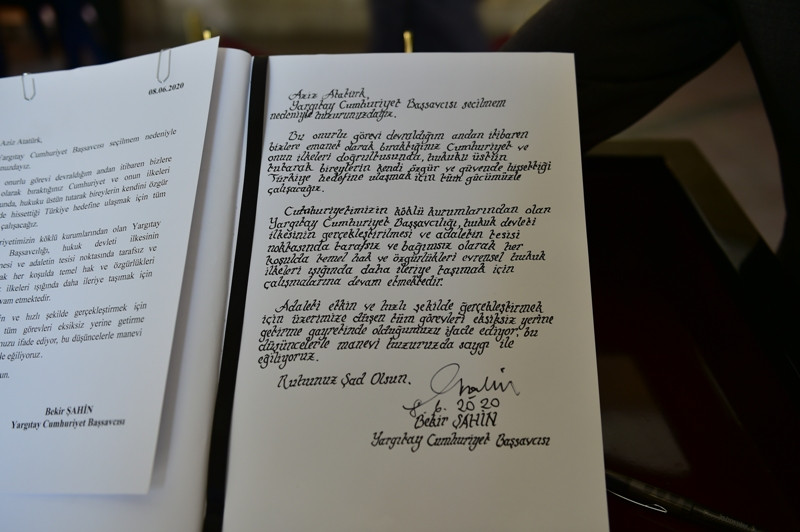 08.06.2020
Aziz Atatürk,
Yargıtay Cumhuriyet Başsavcısı seçilmem nedeniyle
onurlu görevi devraldığım andan itibaren bizlere
olarak bıraktığınız Cumhuriyet ve onun ilkeleri
hukuku üstün tutarak bireylerin kendini özgür
hissettiği Türkiye hedefine ulaşmak için tüm
çalışacağız.
köklü kurumlarından olan Yargıtay
Başsavcılığı, hukuk devleti ilkesinin
ve adaletin tesisi noktasında tarafsız ve
her koşulda temel hak ve özgürlükleri
ilkeleri ışığında daha ileriye taşımak için
etmektedir.
ve hızlı şekilde gerçekleştirmek için
tüm görevleri eksiksiz yerine getirme
ifade ediyor, bu düşüncelerle manevi
eğiliyoruz.
Bekir ŞAHİN
Yargıtay Cumhuriyet Başsavcısı
Aziz Atatürk,
Yargıtay Cumhuriyet Başsavcısı seçilmem
nedeniyle huzurunuzdayız.
Bu onurlu görevi devraldığım andan itibaren
bizlere emanet olarak bıraktığınız Cumhuriyet ve
onun ilkeleri doğrultusunda, hukuku üstün
tutarak bireylerin kendi özgür ve güvende hissettiği
Türkiye hedefine ulaşmak için tüm gücümüzle
çalışacağız.
Cumhuriyetimizin köklü kurumlarından olan
Yargıtay Cumhuriyet Başsavcılığı, hukuk devleti
ilkesinin gerçekleştirilmesi ve adaletin tesisi
noktasında tarafsız ve bağımsız olarak her
koşulda temel hak ve özgürlükleri evrensel hukuk
ilkeleri ışığında daha ileriye taşımak için
çalışmalarına devam etmektedir.
Adaleti etkin ve hızlı şekilde gerçekleştirmek
için üzerimize düşen tüm görevleri eksiksiz yerine
getirme gayretinde olduğumuzu ifade ediyor, bu
düşüncelerle manevi huzuruzda saygı ile
eğiliyoruz.
Ruhunuz Şad Olsun.
8. 6. 2020
Bekir ŞAHİN
Yargıtay Cumhuriyet Başsavcısı